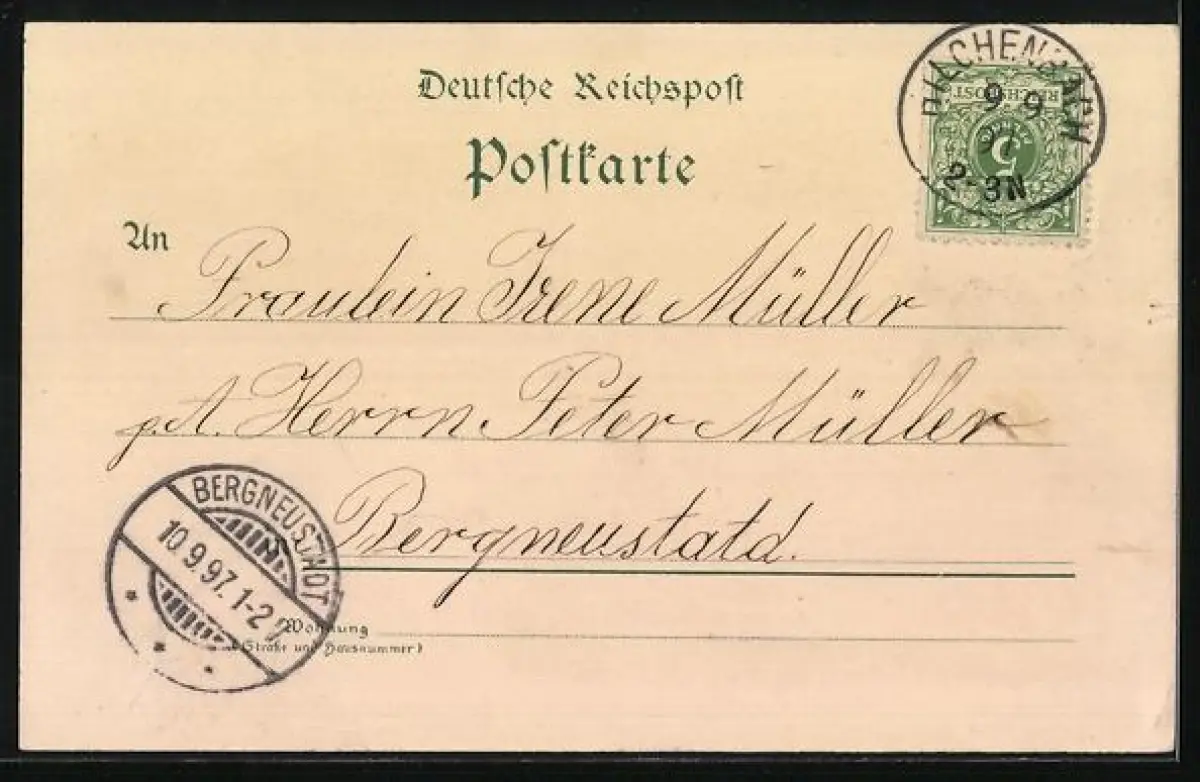 Deutsche Reichspost
Postkarte
HILCHENBACH
9 9
97
2-3N
REICHSPOST
5
An
Fraulein Irene Müller
p. A. Herrn Peter Müller
Bergneustatd.
BERGNEUSTADT
10.9.97. 1-2
Wohnung
(Straße und Hausnummer)